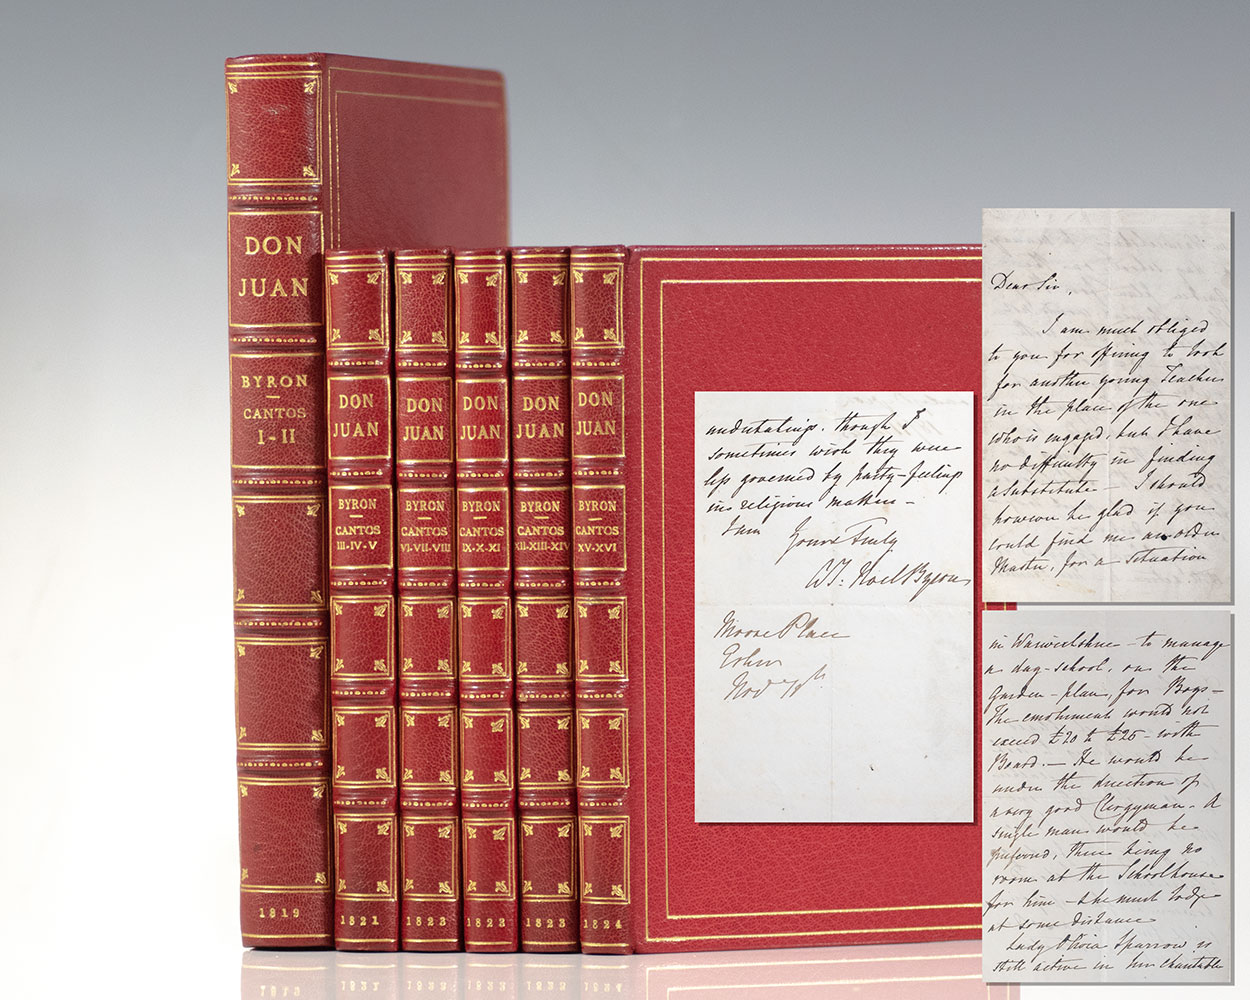 DON
JUAN
BYRON
CANTOS
I-II
1819
DON
JUAN
BYRON
CANTOS
III-IV-V
1821
DON
JUAN
BYRON
CANTOS
VI-VII-VIII
1823
DON
JUAN
BYRON
CANTOS
IX-X-XI
1823
DON
JUAN
BYRON
CANTOS
XII-XIII-XIV
1823
DON
JUAN
BYRON
CANTOS
XV-XVI
1824
Dear Sir,
I am much obliged
to you for offering to look
for another young Teacher
in the place of the one
who is engaged, but I have
no difficulty in finding
a substitute — I should
however be glad if you
could find me an older
Master, for a situation
in Warwickshire — to manage
a day-school, on the
Garden-plan, for Boys —
The emoluments would not
exceed £20 to £25 — with
Board. — He would be
under the direction of
a very good Clergyman. A
single man would be
preferred, there being no
room at the Schoolhouse
for him — he must lodge
at some distance
Lady Olivia Sparrow is
still active in her charitable
undertakings, though I
sometimes wish they were
less governed by party-feelings
in religious matters —
I am
Yours truly
Noel Byron
Moore Place
Esher
Nov